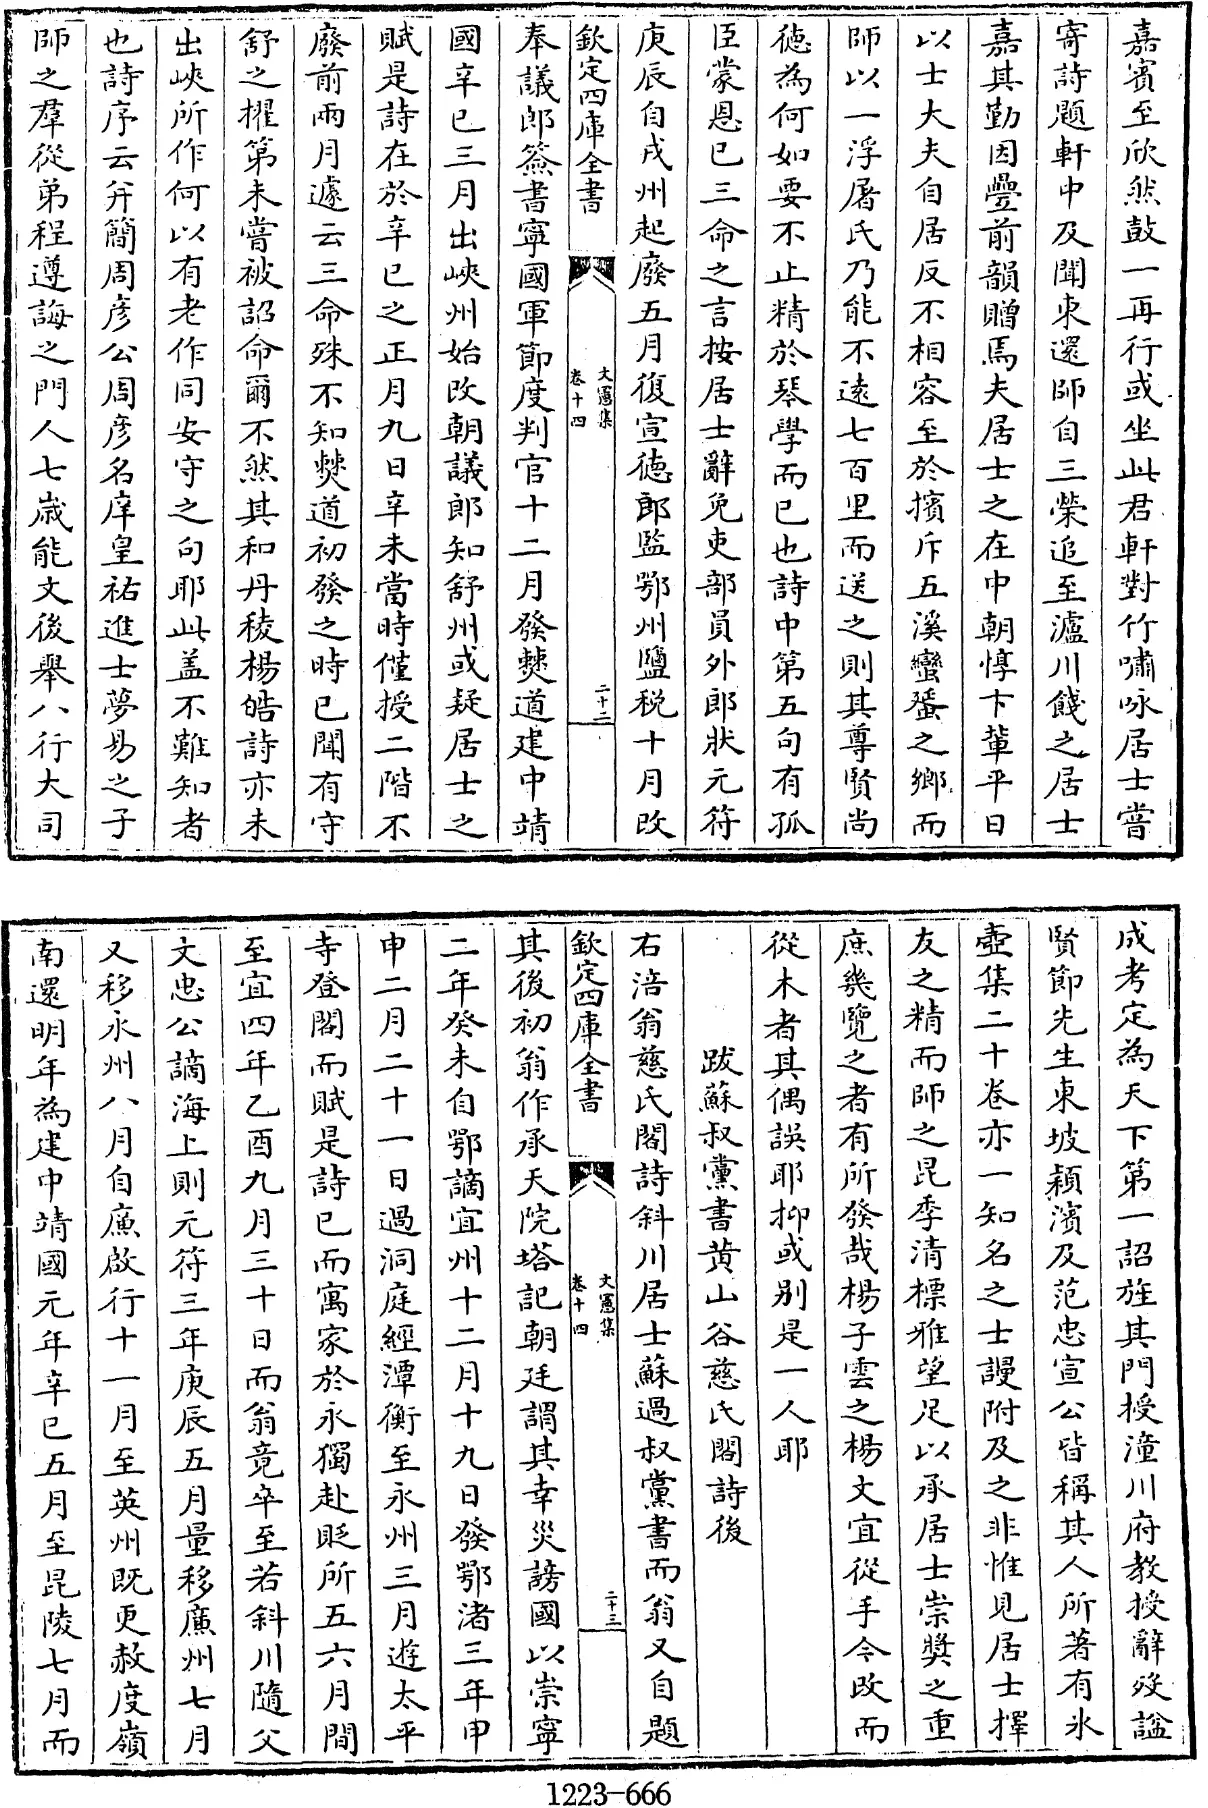 嘉賓至欣然鼓一再行或坐此君軒對竹嘯咏居士嘗
寄詩題軒中及聞東還師自三榮追至瀘川餞之居士
嘉其勤因疊前韻贈焉夫居士之在中朝惇卞輩平日
以士大夫自居反不相容至於擯斥五溪蠻蜑之鄉而
師以一浮屠氏乃能不遠七百里而送之則其尊賢尚
徳為何如要不止精於琴學而已也詩中第五句有孤
臣蒙恩已三命之言按居士辭免吏部員外郎狀元符
庚辰自戎州起廢五月復宣徳郎監鄂州鹽税十月改
欽定四庫全書
文憲集
卷十四
二十二
奉議郎簽書寧國軍節度判官十二月發僰道建中靖
國辛巳三月出峽州始改朝議郎知舒州或疑居士之
賦是詩在於辛巳之正月九日辛未當時僅授二階不
廢前兩月遽云三命殊不知僰道初發之時已聞有守
舒之擢第未嘗被詔命爾不然其和丹稜楊皓詩亦未
出峽所作何以有老作同安守之句耶此盖不難知者
也詩序云并簡周彦公周彦名庠皇祐進士夢易之子
師之羣從弟程遵誨之門人七嵗能文後舉八行大司
成考定為天下第一詔旌其門授潼川府教授辭歿諡
賢節先生東坡穎濱及范忠宣公皆稱其人所著有氷
壺集二十卷亦一知名之士謾附及之非惟見居士擇
友之精而師之昆季清標雅望足以承居士崇奬之重
庶幾覽之者有所發哉楊子雲之楊文宜從手今改而
從木者其偶誤耶抑或别是一人耶
跋蘇叔黨書黄山谷慈氏閣詩後
右涪翁慈氏閣詩斜川居士蘇過叔黨書而翁又自題
欽定四庫全書
文憲集
卷十四
二十三
其後初翁作承天院塔記朝廷謂其幸災謗國以崇寧
二年癸未自鄂謫宜州十二月十九日發鄂渚三年甲
申二月二十一日過洞庭經潭衡至永州三月遊太平
寺登閣而賦是詩已而寓家於永獨赴貶所五六月間
至宜四年乙酉九月三十日而翁竟卒至若斜川隨父
文忠公謫海上則元符三年庚辰五月量移廉州七月
又移永州八月自廉啟行十一月至英州既更赦度嶺
南還明年為建中靖國元年辛巳五月至昆陵七月而
1223-666